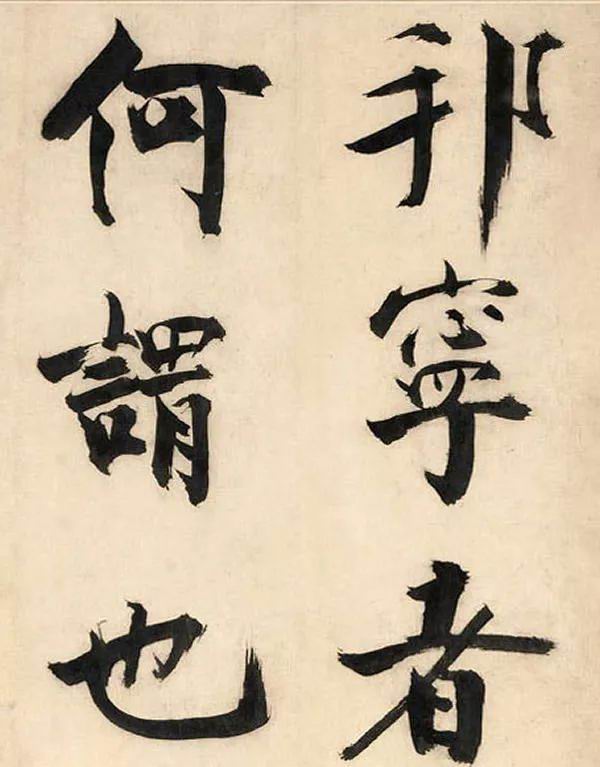 邦寧者
何謂也